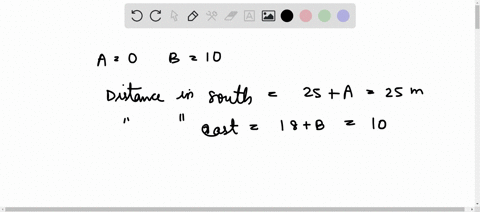 A = 0 B = 10
Distance in south = 25 + A = 25 m
" " east = 18 + B = 10